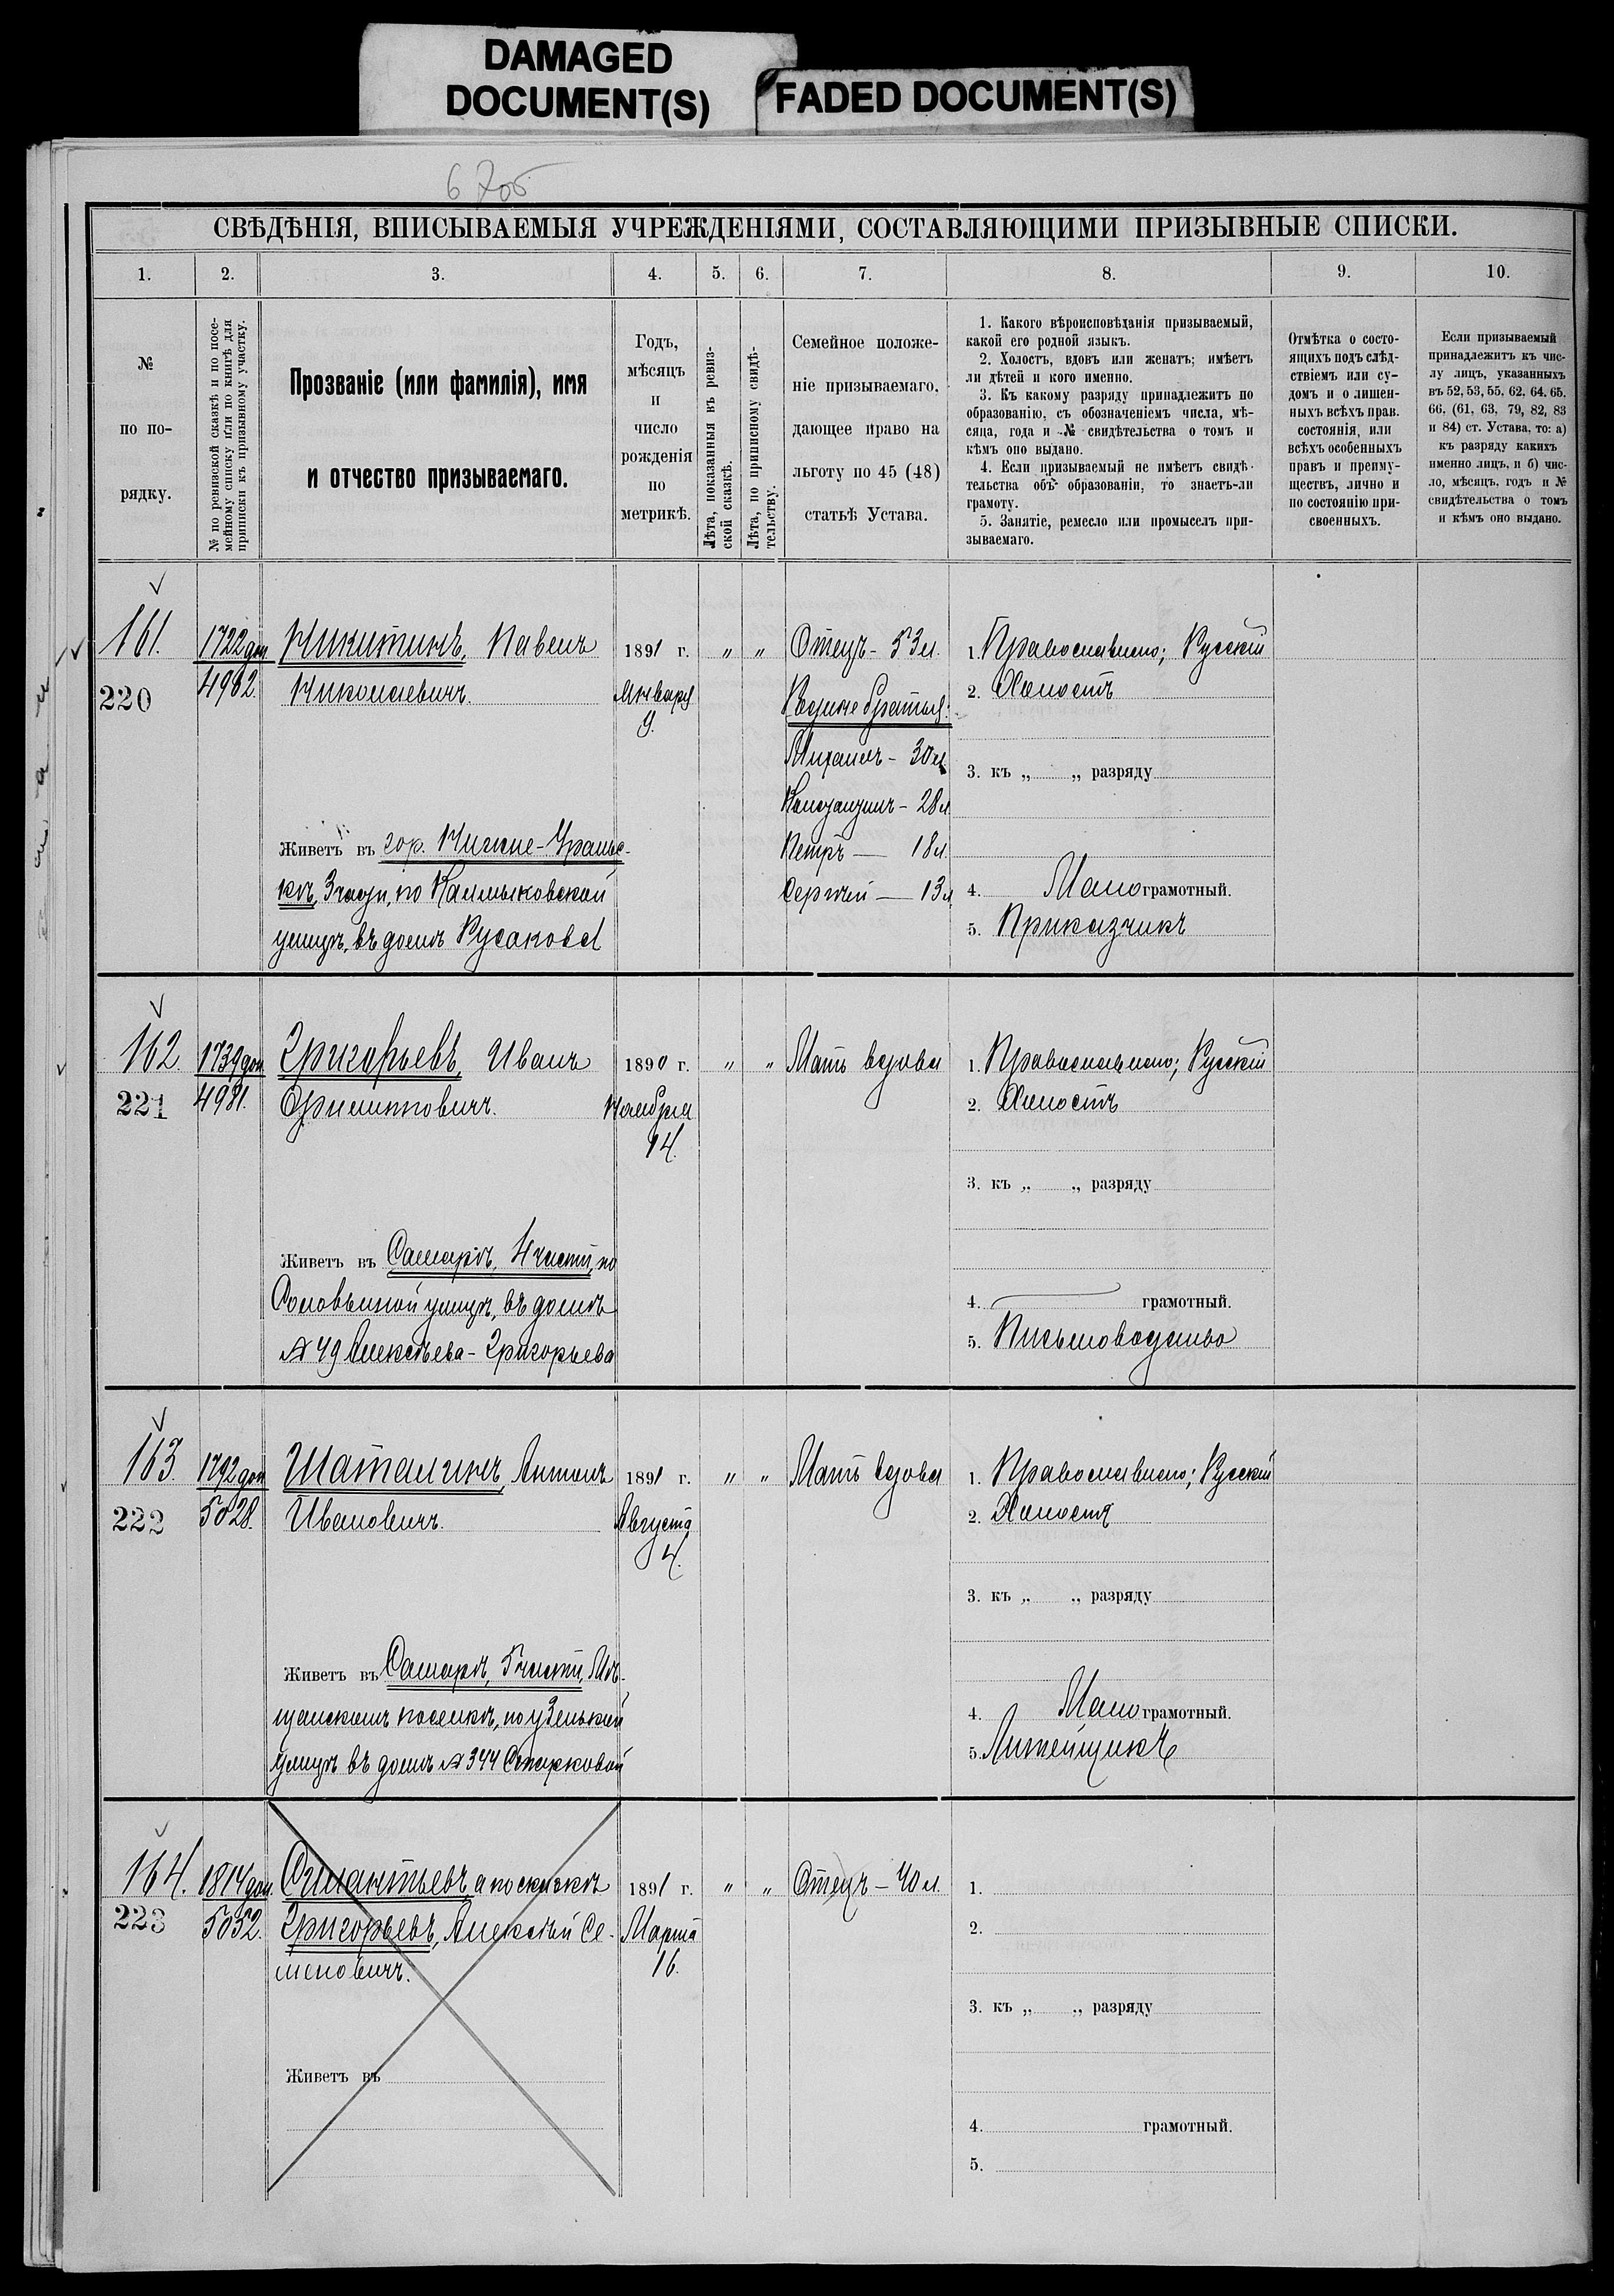 DAMAGED
DOCUMENT(S)
FADED DOCUMENT(S)
СВѢДѢНІЯ, ВПИСЫВАЕМЫЯ УЧРЕЖДЕНІЯМИ, СОСТАВЛЯЮЩИМИ ПРИЗЫВНЫЕ СПИСКИ.
1. 2. 3. 4. 5. 6. 7. 8. 9. 10.
№
по по-
рядку.
№ по ревизской сказкѣ и по посе-
мейному списку или по книгѣ для
приписки къ призывному участку.
Прозваніе (или фамилія), имя
и отчество призываемаго.
Годъ,
мѣсяцъ
и
число
рожденія
по
метрикѣ.
Лѣта, показанныя въ ревиз-
ской сказкѣ.
Лѣта, по приписному свидѣ-
тельству.
Семейное положе-
ніе призываемаго,
дающее право на
льготу по 45 (48)
статьѣ Устава.
1. Какого вѣроисповѣданія призываемый,
какой его родной языкъ.
2. Холостъ, вдовъ или женатъ; имѣетъ
ли дѣтей и кого именно.
3. Къ какому разряду принадлежитъ по
образованію, съ обозначеніемъ числа, мѣ-
сяца, года и № свидѣтельства о томъ и
кѣмъ оно выдано.
4. Если призываемый не имѣетъ свидѣ-
тельства объ образованіи, то знаетъ-ли
грамоту.
5. Занятіе, ремесло или промыселъ при-
зываемаго.
Отмѣтка о состо-
ящихъ подъ слѣд-
ствіемъ или су-
домъ и о лишен-
ныхъ всѣхъ прав.
состоянія, или
всѣхъ особенныхъ
правъ и преиму-
ществъ, лично и
по состоянію при-
своенныхъ.
Если призываемый
принадлежитъ къ чис-
лу лицъ, указанныхъ
въ 52, 53, 55, 62, 64, 65,
66, (61, 63, 79, 82, 83
и 84) ст. Устава, то: а)
къ разряду какихъ
именно лицъ, и б) чис-
ло, мѣсяцъ, годъ и №
свидѣтельства о томъ
и кѣмъ оно выдано.
161. 1722 доп. Никитинъ, Павелъ 1891 г. „ „ Отецъ - 53 л. 1. Православное; Русскій
220 4962. Николаевичъ. Января 2. Холостъ
9. Родные братья:
Михаилъ - 30 л. 3. къ „ „ разряду
28 л.
Живетъ въ гор. Нижне-Уральс- Петръ — 18 л.
кѣ, 3 части, по Калмыковской Сергѣй — 13 л. 4. Малограмотный.
улицѣ, въ домѣ Русакова 5. Приказчикъ
162. 1739 доп. Григорьевъ, Иванъ 1890 г. „ „ Мать вдова 1. Православное; Русскій
221 4981. Филипповичъ. Ноября 2. Холостъ
14.
3. къ „ „ разряду
Живетъ въ Самарѣ, 4 части, по
Соловьиной улицѣ, въ домѣ 4. грамотный.
№ 49 Алексѣева-Григорьева 5. Письмоводство
163. 1792 доп. Шаталинъ, Антонъ 1891 г. „ „ Мать вдова 1. Православное; Русскій
222 5028. Ивановичъ. Августа 2. Холостъ
4.
3. къ „ „ разряду
Живетъ въ Самарѣ, 5 части, Мѣ-
щанскомъ поселкѣ, по Узенькой 4. Малограмотный.
улицѣ въ домѣ № 344 Старковой 5. Литейщикъ
164. 1814 доп. а по скаскѣ 1891 г. „ „ Отецъ - 40 л. 1.
223 5052. Григорьевъ, Алексѣй Се- Марта 2.
меновичъ. 16.
3. къ „ „ разряду
Живетъ въ
4. грамотный.
5.